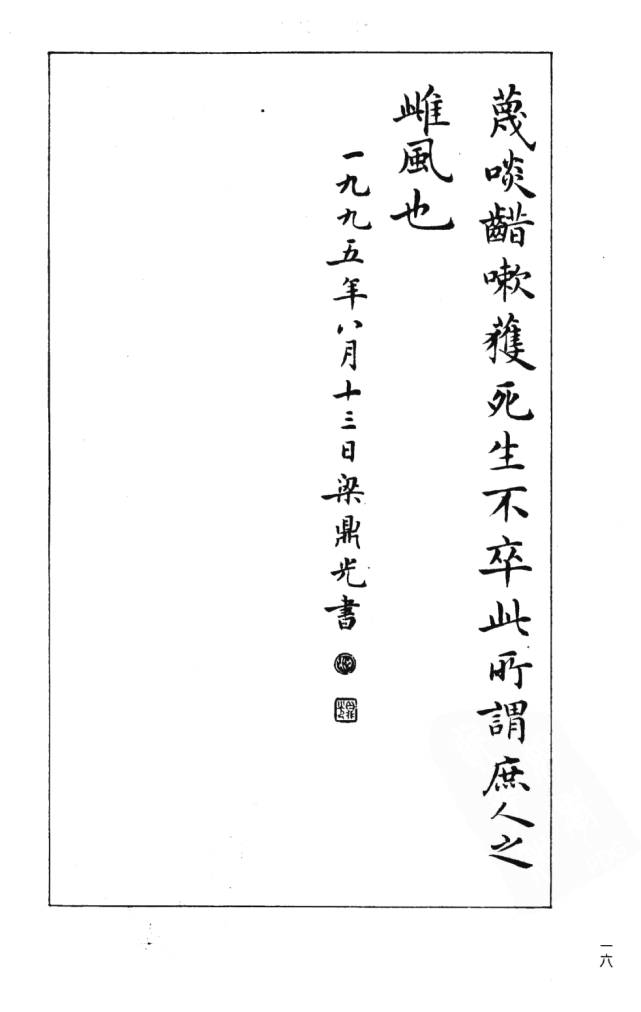 蔑啖齰嗽獲死生不卒此所謂庶人之
雌風也
一九九五年八月十三日梁鼎光書
一六